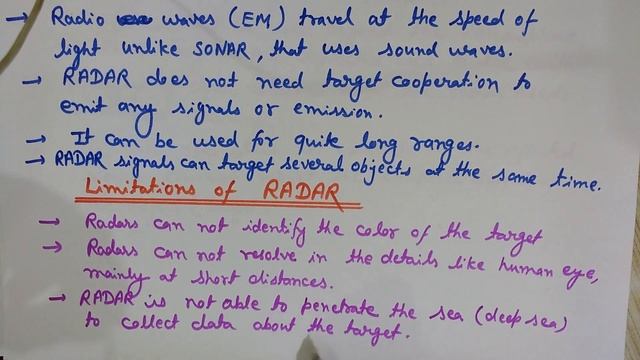 → Radio waves (EM) travel at the speed of
light unlike SONAR, that uses sound waves.
→ RADAR does not need target cooperation to
emit any signals or emission.
→ It can be used for quite long ranges.
→ RADAR signals can target several objects at the same time.
Limitations of RADAR
→ Radars can not identify the color of the target
→ Radars can not resolve in the details like human eye,
mainly at short distances.
→ RADAR is not able to penetrate the sea (deep sea)
to collect data about the target.